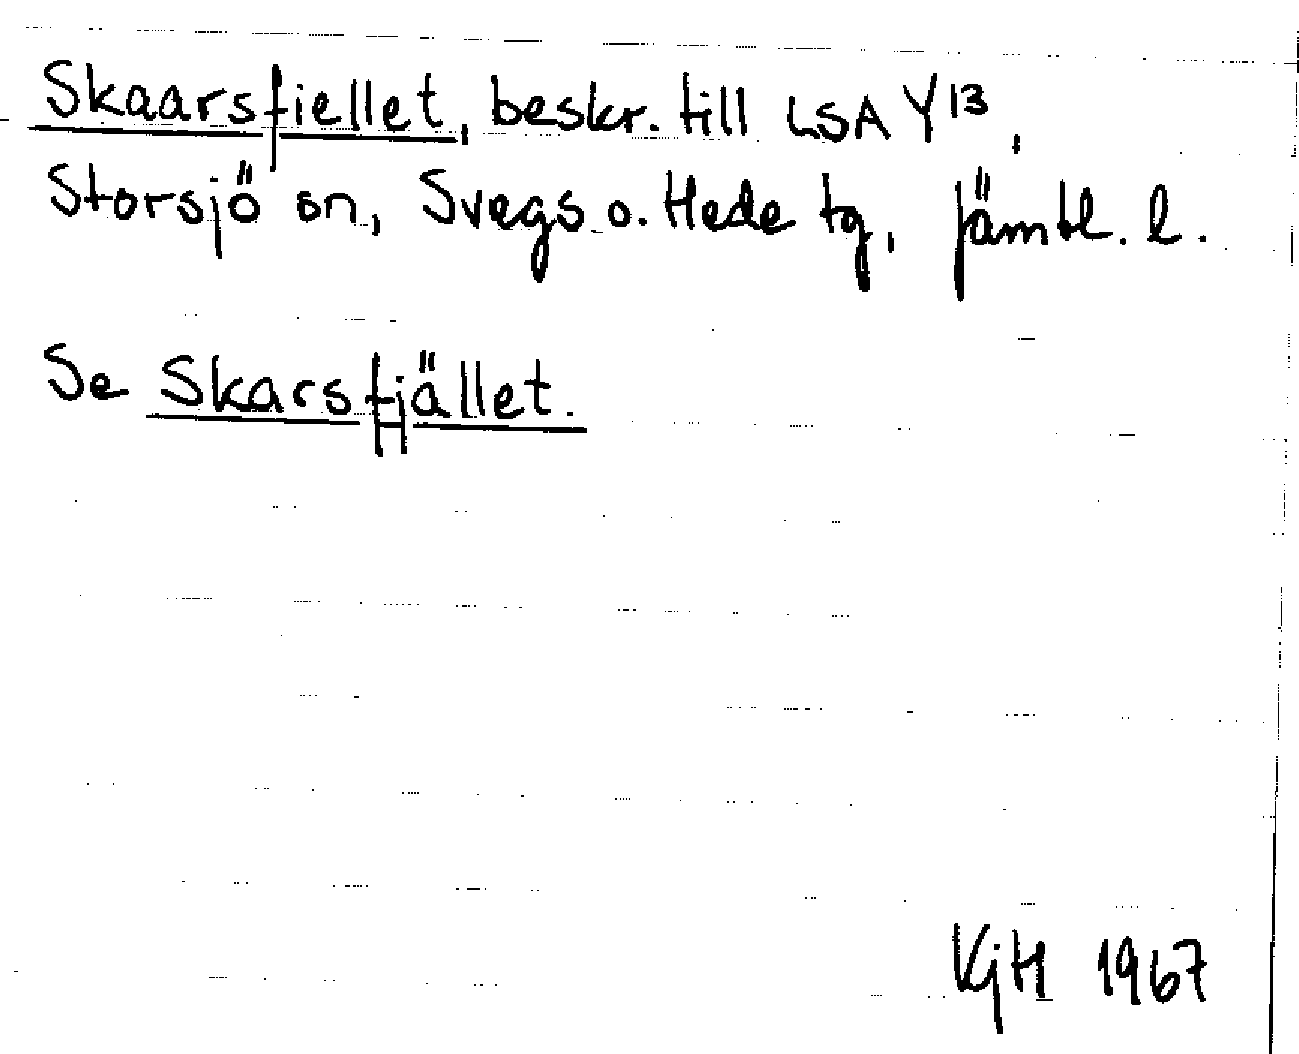 Skaarsfiellet, beskr. till LSA Y13,
Storsjö sn, Svegs o. Hede tg, Jämtl. l.
Se Skarsfjället.
KjH 1967